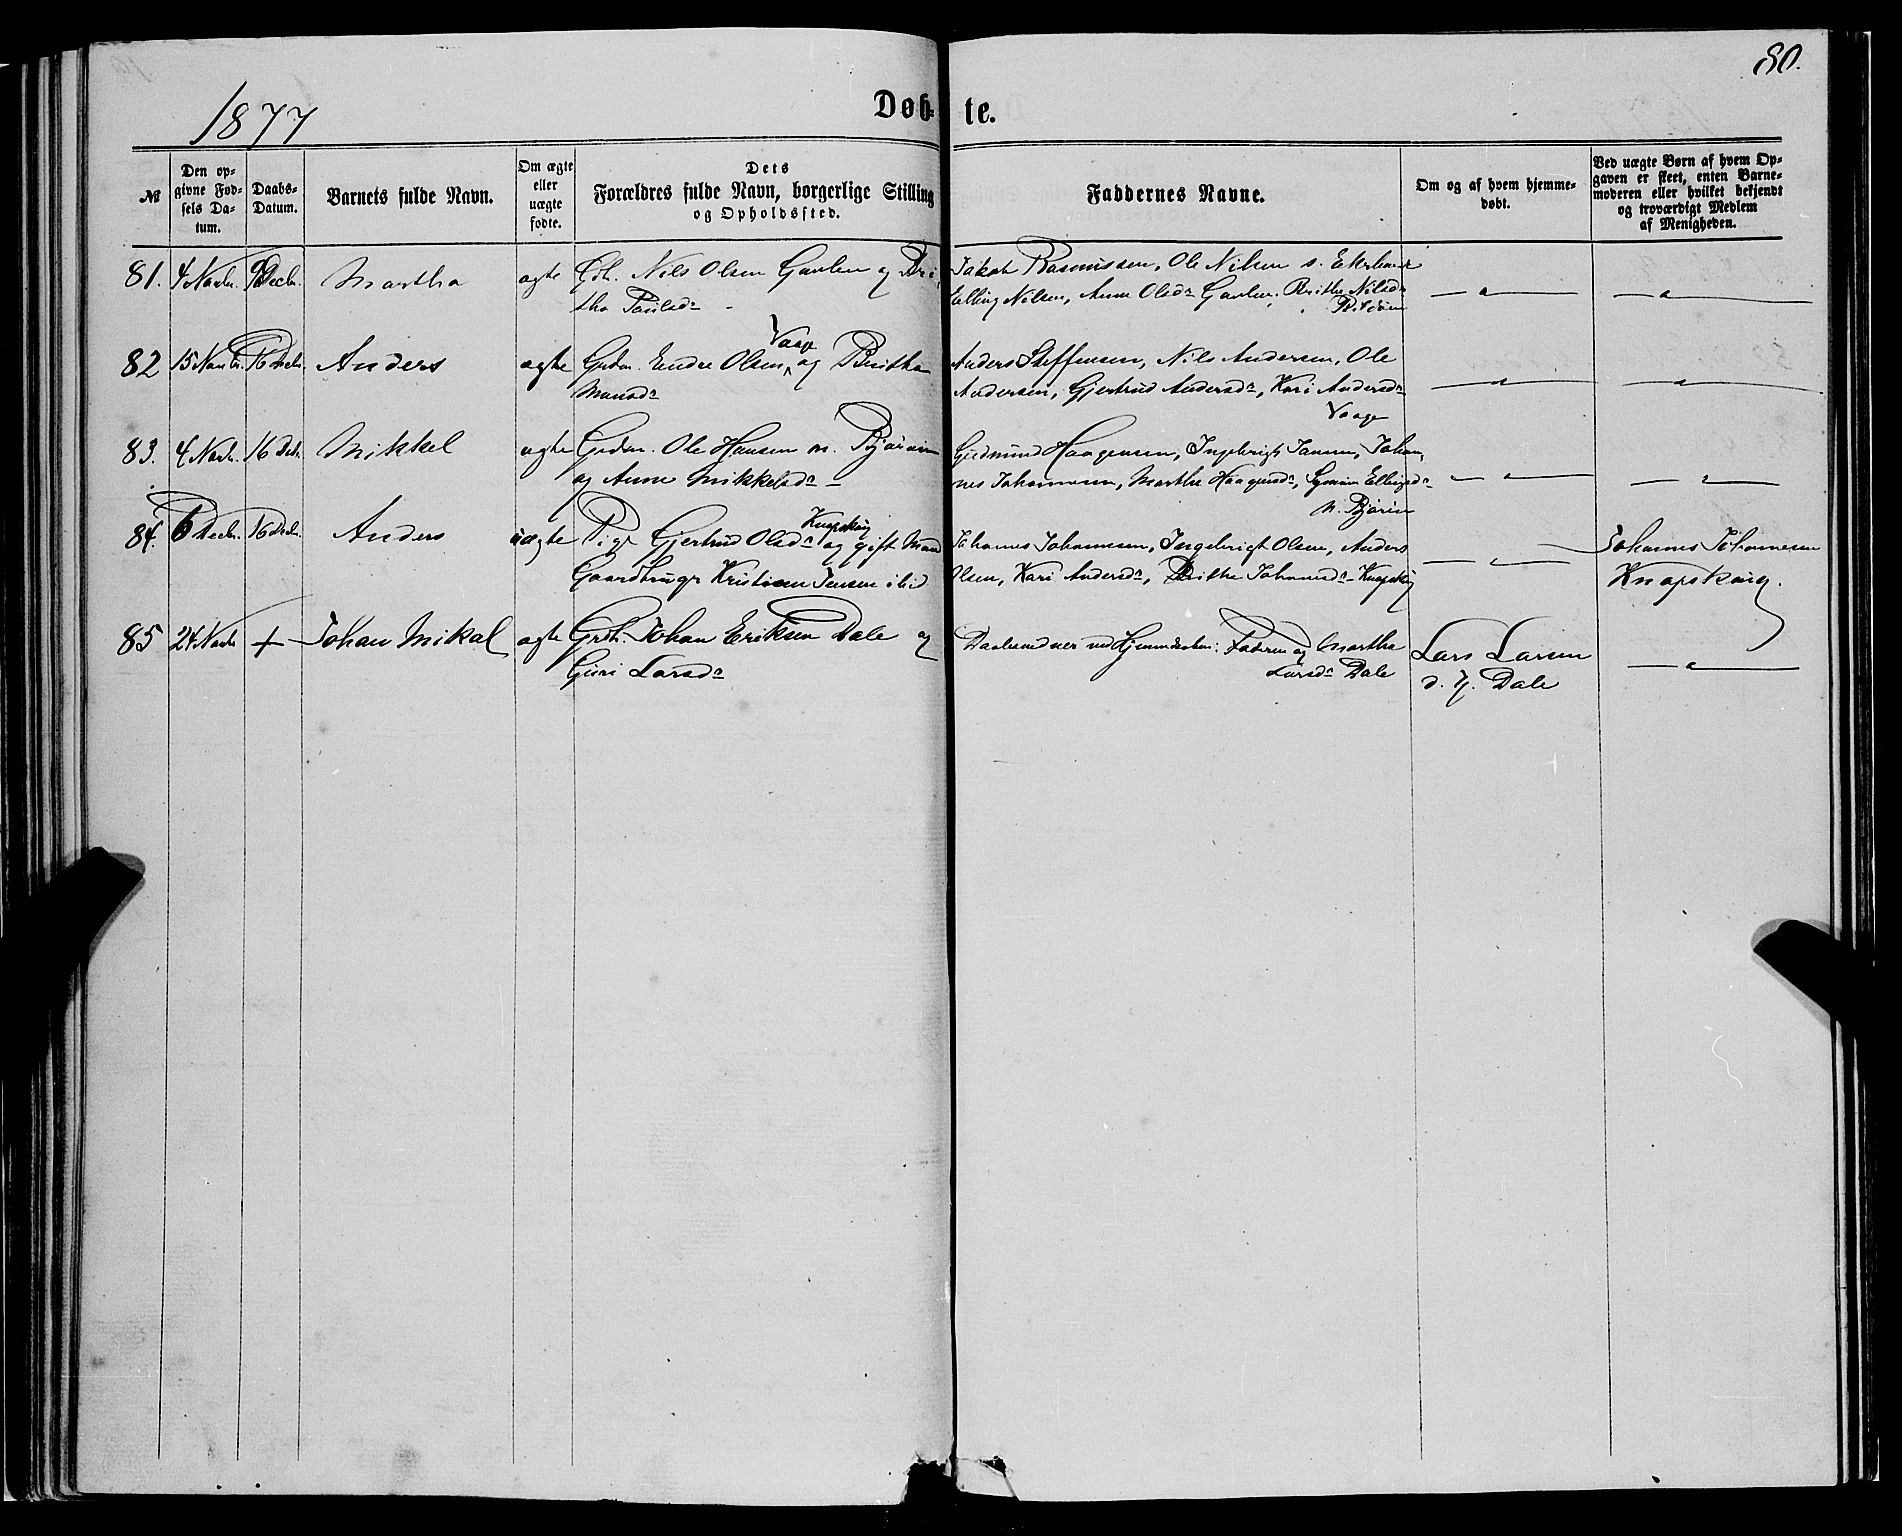 80.
1877
Døb- te.
№
Den op-
givne Fød-
sels Da-
tum.
Daabs-
Datum.
Barnets fulde Navn.
Om ægte
eller
uægte
fødte.
Dets
Forældres fulde Navn, borgerlige Stilling
og Opholdssted.
Faddernes Navne.
Om og af hvem hjemme-
døbt.
Ved uægte Børn af hvem Op-
gaven er skeet, enten Barne-
moderen eller hvilket bekjendt
og troværdigt Medlem
af Menigheden.
81. 4 Novbr. Decbr. Martha ægte Nils Olsen Gaulen og Bri-
tha Paulsdr
Jakob Rasmussen, Ole Nilsen
Elling Nilsen, Anne Olsdr Gaulen, Britha Nilsdr
82 15 Novbr. 16 Decbr. Anders ægte Grdm. Endre Olsen Vaage og Beritha
Monsdr
Anders Steffensen, Nils Andersen, Ole
Andersen, Gjertrud Andersdr, Kari Andersdr
Vaage
83. 4 Novbr. 16 Decbr. Mikkel ægte Grdm. Ole Hansen n. Bjørnen
og Anne Mikkelsdr
Gudmund Haagensen, Ingebrigt Jansen, Johan-
nes Johannesen, Marthe Haagensdr, Ellingsdr
84. 6 Decbr. 16 Decbr. Anders uægte Pige Gjertrud Olsdr Knapskog og gift Mand
Gaardbruger Kristian Jensen ibid
Johannes Johannesen, Ingebrigt Olsen, Anders
Olsen, Kari Andersdr, Brithe Johannesdr Knapskog
Johannes Johannesen
Knapskog.
85 24 Novbr + Johan Mikal ægte Johan Eriksen Dale og
Guri Larsdr
Daabsvidner ved Hjemmedaaben: Faderen og Martha
Larsdr Dale
Lars Larsen
Dale